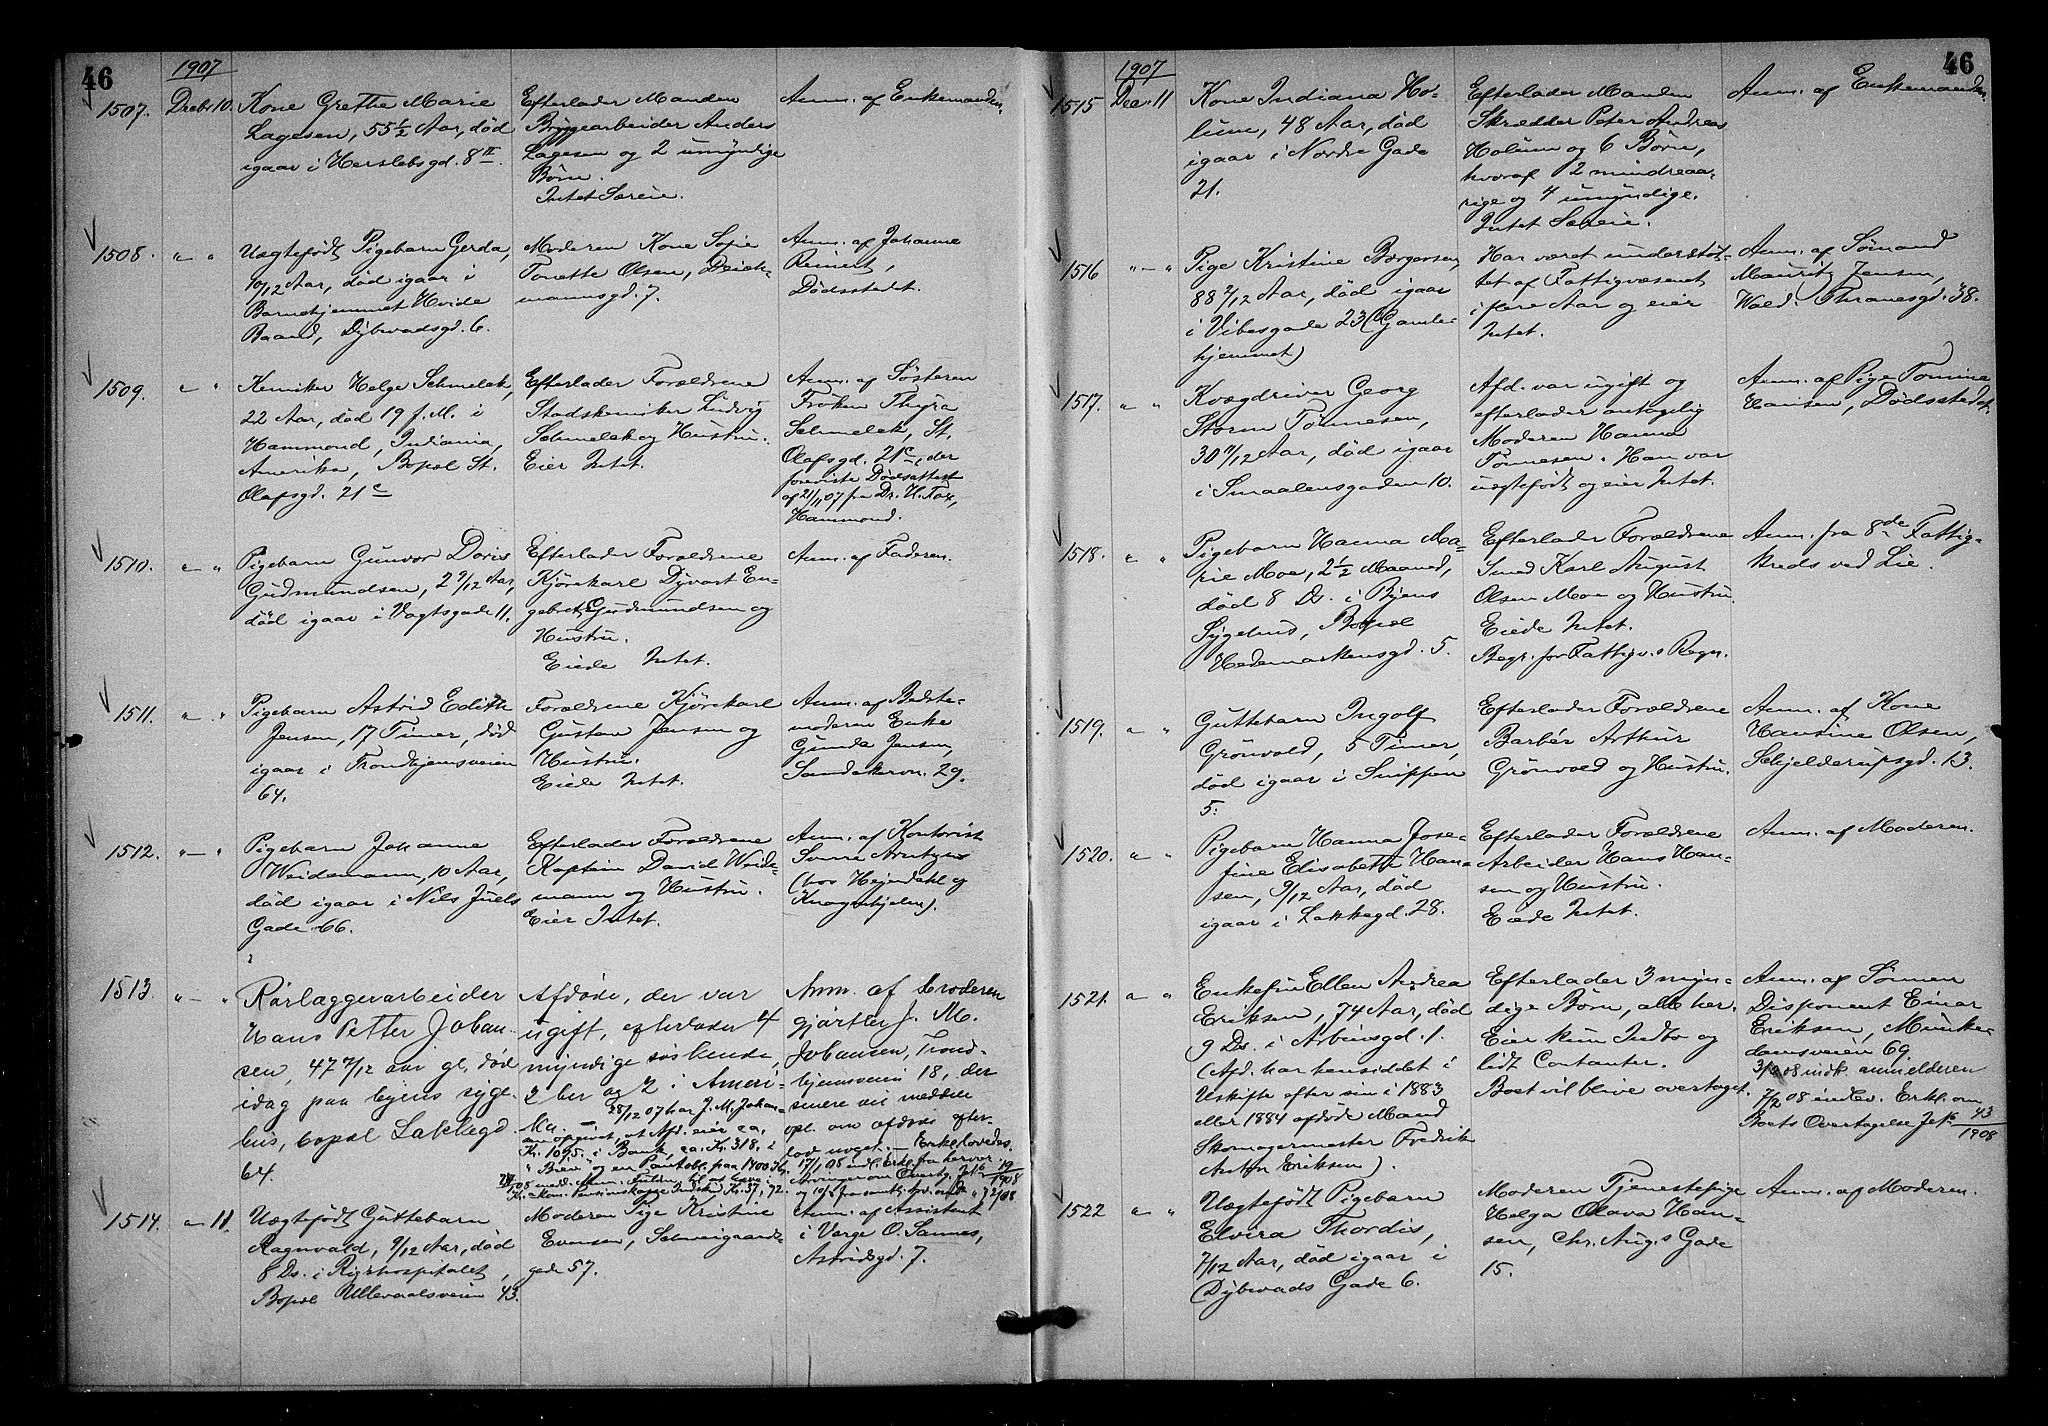 46
1907
1507. Decbr. 10. Kone Grethe Marie
Lagesen, 55 1/2 Aar, død
igaar i Herslebsgd. 8 II.
Efterlader Manden
Bryggearbeider Anders
Lagesen og 2 umyndige
Børn.
Intet Særeie.
Anm. af Enkemanden.
1508. " " Uægtefødt Pigebarn Gerda,
10/12 Aar, død igaar i
Barnehjemmet Hvide
Baand, Dybwadsgd. 6.
Moderen Kone Sofie
Tonette Olsen, Deich-
mannsgd. 7.
Anm. af Johanne
Reinert,
Dødsstedet.
1509. " " Kemiker Helge Schmelck,
22 Aar, død 19 f. M. i
Hammond, Indiania,
Amerika, Bopæl St.
Olafsgd. 21 c
Efterlader Forældrene
Stadskemiker Ludvig
Schmelck og Hustru.
Eier Intet.
Anm. af Søsteren
Frøken Thyra
Schmelck, St.
Olafsgd. 21 c, der
foreviste Dødsattest
af 21/11 07 fra Dr. H. Fox,
Hammond.
1510. " " Pigebarn Gunvor Doris
Gudmundsen, 2 9/12 Aar,
død igaar i Vogtsgade 11.
Efterlader Forældrene
Kjørekarl Dyvart En-
gebret Gudmundsen og
Hustru.
Eiede Intet.
Anm. af Faderen.
1511. " " Pigebarn Astrid Edith
Jensen, 17 Timer, død
igaar i Trondhjemsveien
64.
Forældrene Kjørekarl
Gustav Jensen og
Hustru.
Eiede Intet.
Anm. af Bedste-
moderen Enke
Gunda Jensen,
Sandakervn. 29.
1512. " " Pigebarn Johanne
Weidemann, 10 Aar,
død igaar i Nils Juels
Gade 66.
Efterlader Forældrene
Kaptein David Weide-
mann og Hustru.
Eier Intet.
Anm. af Kontorist
Arntzen
(hos Heyerdahl og
1513. " " Rørlæggerarbeider
Hans Petter Johan-
sen, 47 7/12 aar gl., død
idag paa byens syge-
hus, bopæl Lakkegd.
64.
Afdøde, der var
ugift, efterlader 4
myndige søskende,
2 her og 2 i Ameri-
ka. —
28/12 07 har J. M. Johan-
sen opgivet, at Afd. eier ca.
Kr. 1095. i Bank, ca. Kr. 318, i
"Brev" og en Pantobl. paa 1400 Kr.
Anm. af broderen
gjørtler J. M.
Johansen, Trond-
hjemsveien 18, der
senere vil meddele
opl. om afdødes efter-
ladte noget. —
19/1908
1514. " 11. Uægtefødt Guttebarn
Ragnvald, 9/12 Aar, død
8 Ds. i Rigshospitalet,
Bopæl Ullevaalsveien 43.
Moderen Pige Kristine
Evensen, Schweigaards-
gade 57.
Anm. af Assistent
i Værge O. Sannes,
Astridsgd. 7.
46
1907
1515 Dec. 11 Kone Indiana Ho-
lum, 48 Aar, død
igaar i Nordre Gade
21.
Efterlader Manden
Skrædder Peter Andreas
Holum og 6 Børn,
hvoraf 2 mindreaa-
rige og 4 umyndige.
Intet Særeie.
Anm. af Enkemanden.
1516 " " Pige Kristine Børgersen,
88 2/12 Aar, død igaar
i Vibesgade 23 (Gamle-
hjemmet)
Har været understøt-
tet af Fattigvæsenet
i flere Aar og eier
Intet.
Anm. af Sømand
Mauritz Jensen,
Wald. Thranesgd. 38.
1517. " " Kvægdriver Georg
Storm Tønnesen,
30 11/12 Aar, død igaar
i Smaalensgaden 10.
Afd. var ugift og
efterlader antagelig
Moderen Hanna
Tønnesen. Han var
uægtefødt og eier Intet.
Anm. af Pige Tomine
Hansen, Dødsstedet.
1518. " " Pigebarn Hanna Ma-
rie Moe, 2 1/2 Maaned,
død 8 Ds. i Byens
Sygehus, Bopæl
Hedemarkensgd. 5.
Efterlader Forældrene
Smed Karl August
Olsen Moe og Hustru.
Eiede Intet.
Begr. for Fattigv.s Regn.
Anm. fra 8de Fattig-
kreds ved Lie.
1519. " " Guttebarn Ingolf
Grønvold, 5 Timer,
død igaar i Snippen
5.
Efterlader Forældrene
Barbér Arthur
Grønvold og Hustru.
Anm. af Kone
Hansine Olsen,
Schjelderupsgd. 13.
1520. " " Pigebarn Hanna Jose-
fine Elisabeth Han-
sen, 9/12 Aar, død
igaar i Lakkegd. 28.
Efterlader Forældrene
Arbeider Hans Han-
sen og Hustru.
Eiede Intet.
Anm. af Moderen.
1521. " " Enkefru Ellen Andrea
Eriksen, 74 Aar, død
9 Ds. i Arbinsgd. 1.
(Afd. har hensiddet i
Uskifte efter sin i 1883
eller 1884 afdøde Mand
Skomagermester Fredrik
Anton Eriksen).
Efterlader 3 myn-
dige Børn, alle her.
Eier kun Indbo og
lidt Contanter.
Boet vil blive overtaget.
Anm. af Sønnen
Disponent Einar
Eriksen, Munke-
damsveien 69.
3/2 08 indk. anmelderen
7/2 08 indlev. Erkl. om
Boets Overtagelse Jk. 43/1908
1522 " " Uægtefødt Pigebarn
Elvira Thordis,
7/12 Aar, død igaar i
Dybwads Gade 6.
Moderen Tjenestepige
Helga Olava Han-
sen, Chr. Aug.s Gade
15.
Anm. af Moderen.